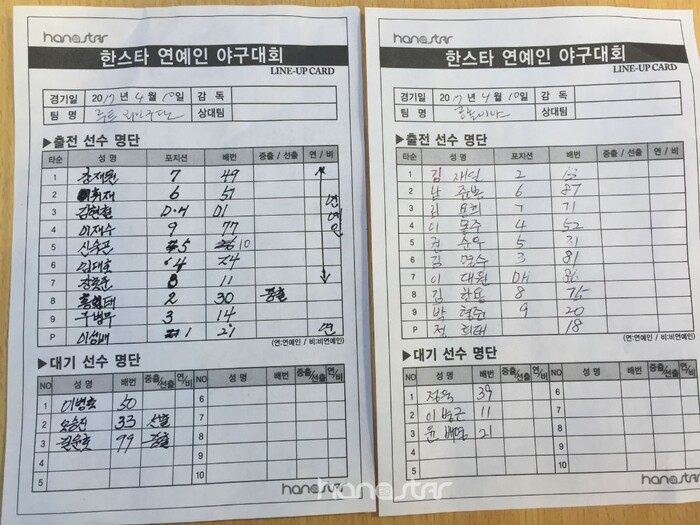 hanostar
한스타 연예인 야구대회
LINE-UP CARD
경기일 2017년 4월 10일 감 독
팀 명 상대팀
▶출전 선수 명단
타순 성 명 포지션 배번 중출 / 선출 연 / 비
1 7 49
2 휘재 6 51
3 김현철 D.H 01
4 이재수 9 77
5 5 10
6 임대호 4 24
7 8 11
8 2 30 중출
9 3 14
P 1 21 연
연예인
(연:연예인 / 비:비연예인)
▶대기 선수 명단
NO 성 명 배번 중출/선출 연/비 NO 성 명 배번 중출/선출 연/비
1 이병호 50 6
2 오승진 33 선출 7
3 99 중출 8
4 9
5 10
hanostar
hanostar
한스타 연예인 야구대회
LINE-UP CARD
경기일 2017년 4월 10일 감 독
팀 명 공놀이야 상대팀
▶출전 선수 명단
타순 성 명 포지션 배번 중출 / 선출 연 / 비
1 김 재일 2
2 남 6 87
3 김 7 71
4 이 동주 4 52
5 5 31
6 김 명수 3 81
7 이 대원 DH
8 김 8 75
9 박 9 20
P 정 희태 18
(연:연예인 / 비:비연예인)
▶대기 선수 명단
NO 성 명 배번 중출/선출 연/비 NO 성 명 배번 중출/선출 연/비
1 정욱 39 6
2 이 봉근 11 7
3 윤 21 8
4 9
5 10
hanostar
hanostar